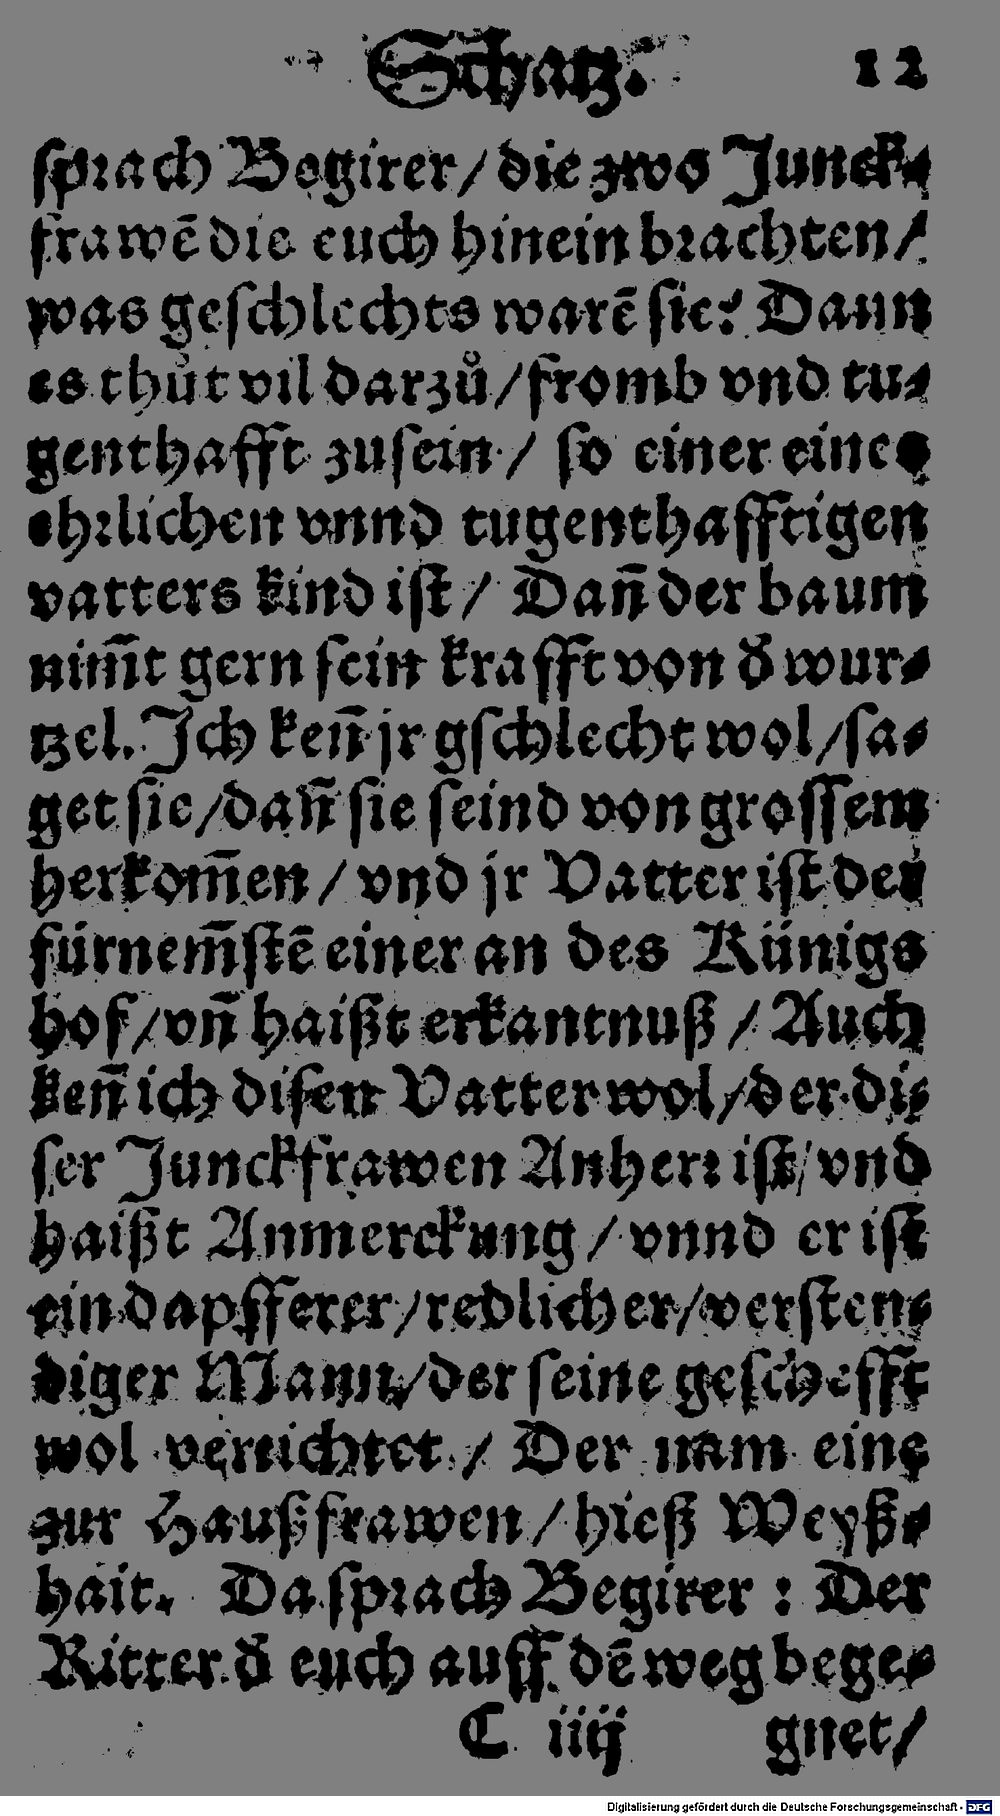 Schatz. 12
ſprach Begirer / die zwo Junck⸗
frawẽ die euch hinein brachten /
was geſchlechts warẽ ſie? Dann
es thuͦt vil darzuͦ / fromb vnd tu⸗
genthafft zuſein / ſo einer eines
ehrlichen vnnd tugenthafftigen
vatters kind iſt / Dañ der baum
nim̃t gern ſein krafft von ð wur⸗
tzel. Ich keñ jr gſchlecht wol / ſa⸗
get ſie / dañ ſie ſeind von groſſem
herkom̃en / vnd jr Vatter iſt der
fürnem̃ſtẽ einer an des Künigs
hof / vñ haißt erkantnuß / Auch
keñ ich diſen Vatter wol / der di⸗
ſer Junckfrawen Anherr iſt / vnd
haißt Anmerckung / vnnd er iſt
ein dapfferer / redlicher / verſten⸗
diger Mann / der ſeine geſchefft
wol verrichtet / Der nam eine
zur Haußfrawen / hieß Weyß⸗
hait. Da ſprach Begirer : Der
Ritter ð euch auff dẽ weg bege⸗
C iiij gnet /
Digitalisierung gefördert durch die Deutsche Forschungsgemeinschaft - DFG